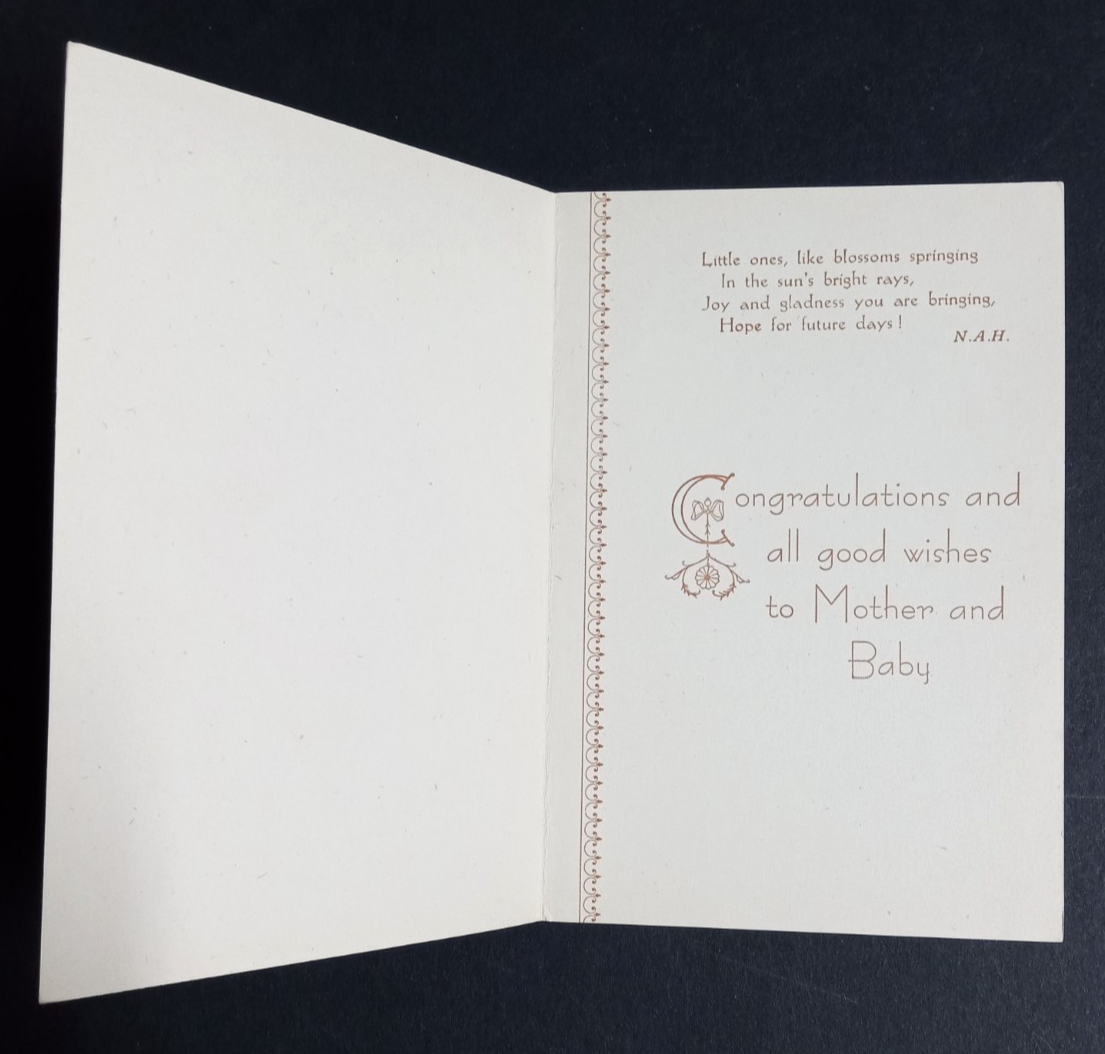 Little ones, like blossoms springing
In the sun's bright rays,
Joy and gladness you are bringing,
Hope for future days!
N.A.H.
Congratulations and
all good wishes
to Mother and
Baby